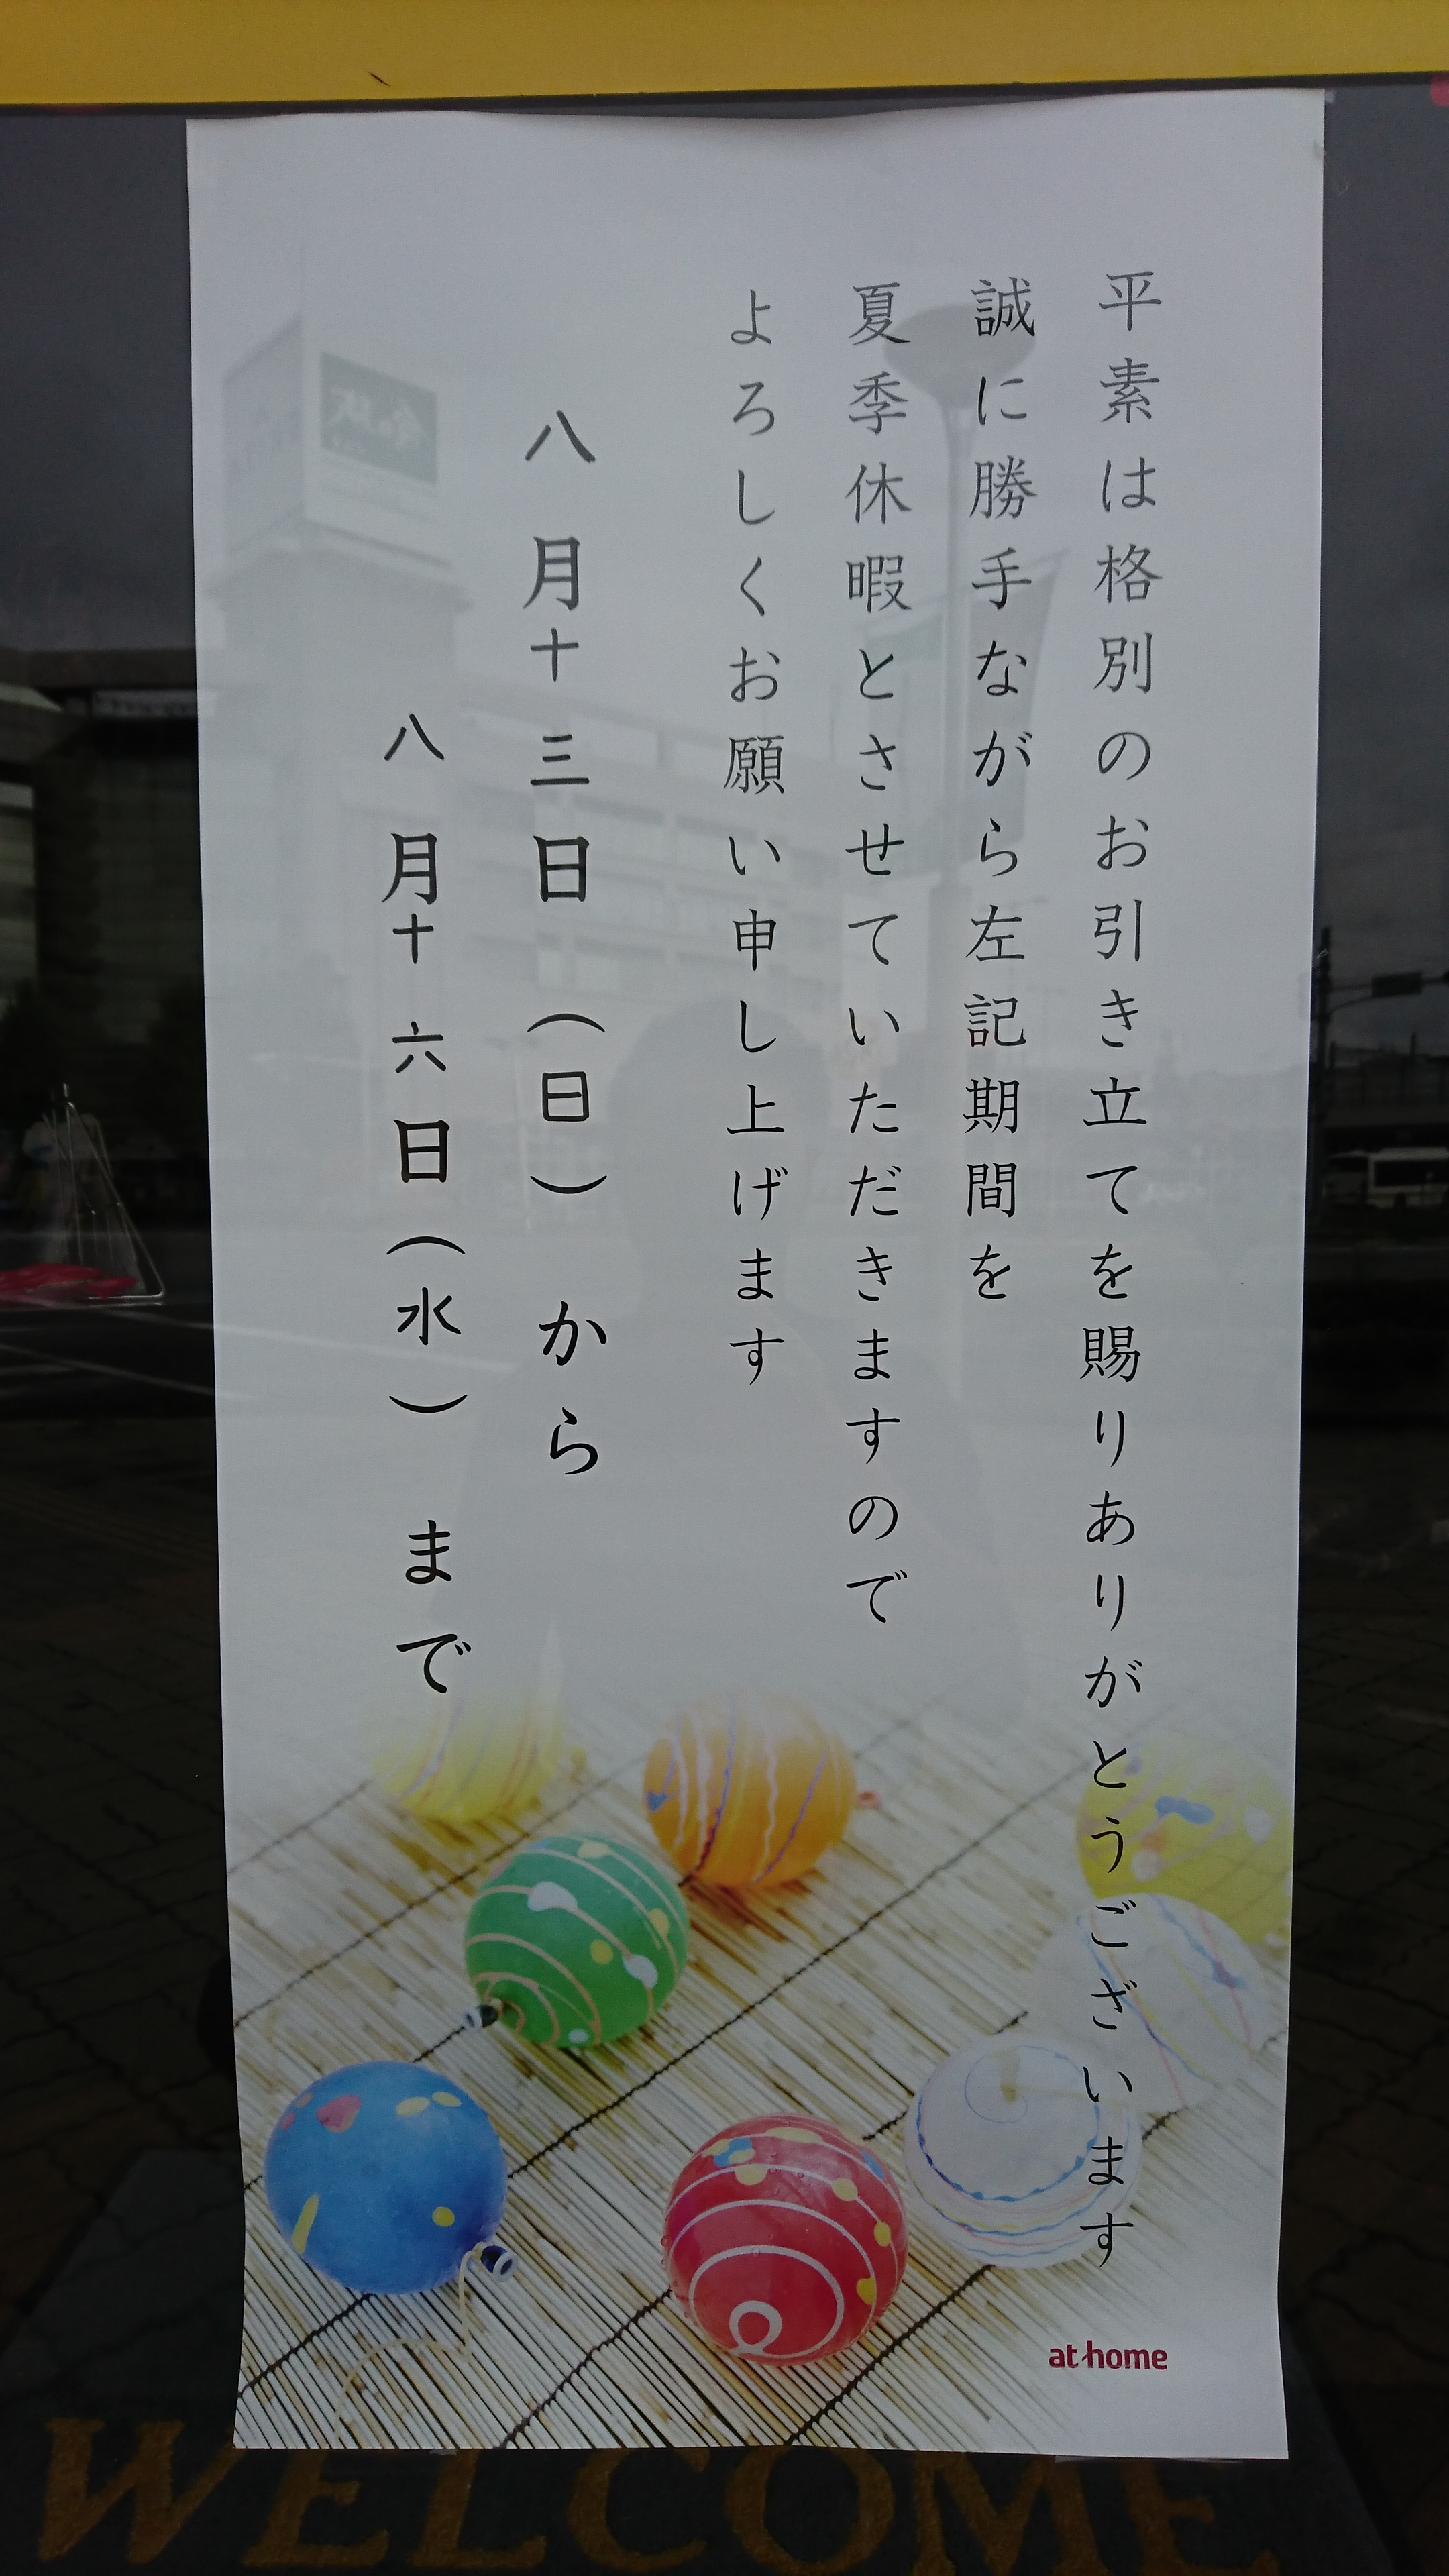 平素は格別のお引き立てを賜りありがとうございます
誠に勝手ながら左記期間を
夏季休暇とさせていただきますので
よろしくお願い申し上げます
八月十三日（日）から
八月十六日（水）まで
at home
WELCOME